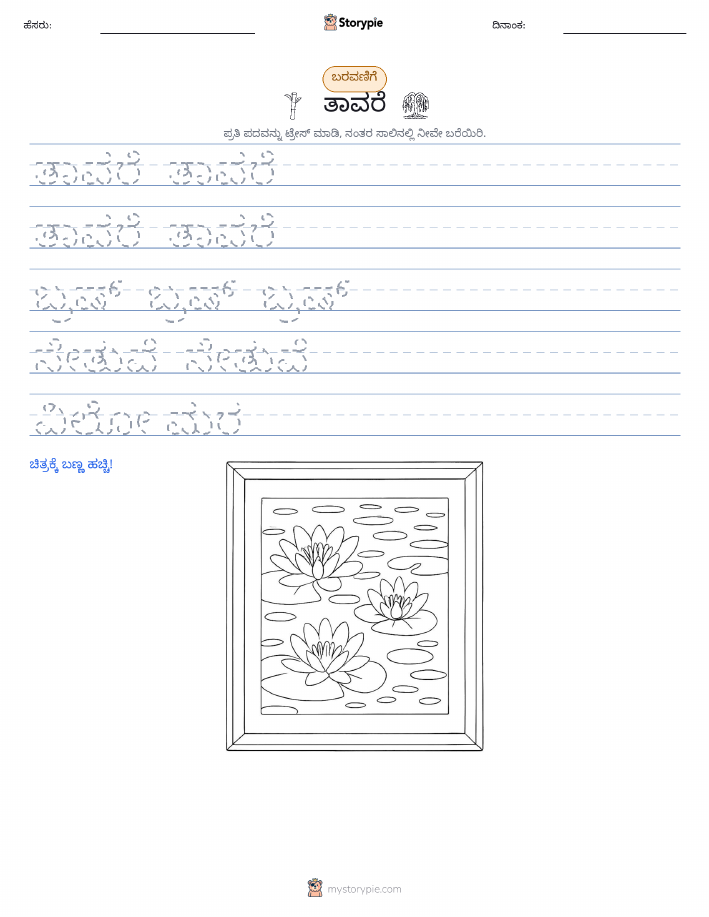 ಹೆಸರು:
Storypie
ದಿನಾಂಕ:
ಬರವಣಿಗೆ
ತಾವರೆ
ಪ್ರತಿ ಪದವನ್ನು ಟ್ರೇಸ್ ಮಾಡಿ, ನಂತರ ಸಾಲಿನಲ್ಲಿ ನೀವೇ ಬರೆಯಿರಿ.
ತಾವರೆ ತಾವರೆ
ತಾವರೆ ತಾವರೆ
ಬ್ರಷ್ ಬ್ರಷ್ ಬ್ರಷ್
ಸೇತುವೆ ಸೇತುವೆ
ವಿಲೋ ಮರ
ಚಿತ್ರಕ್ಕೆ ಬಣ್ಣ ಹಚ್ಚಿ!
mystorypie.com